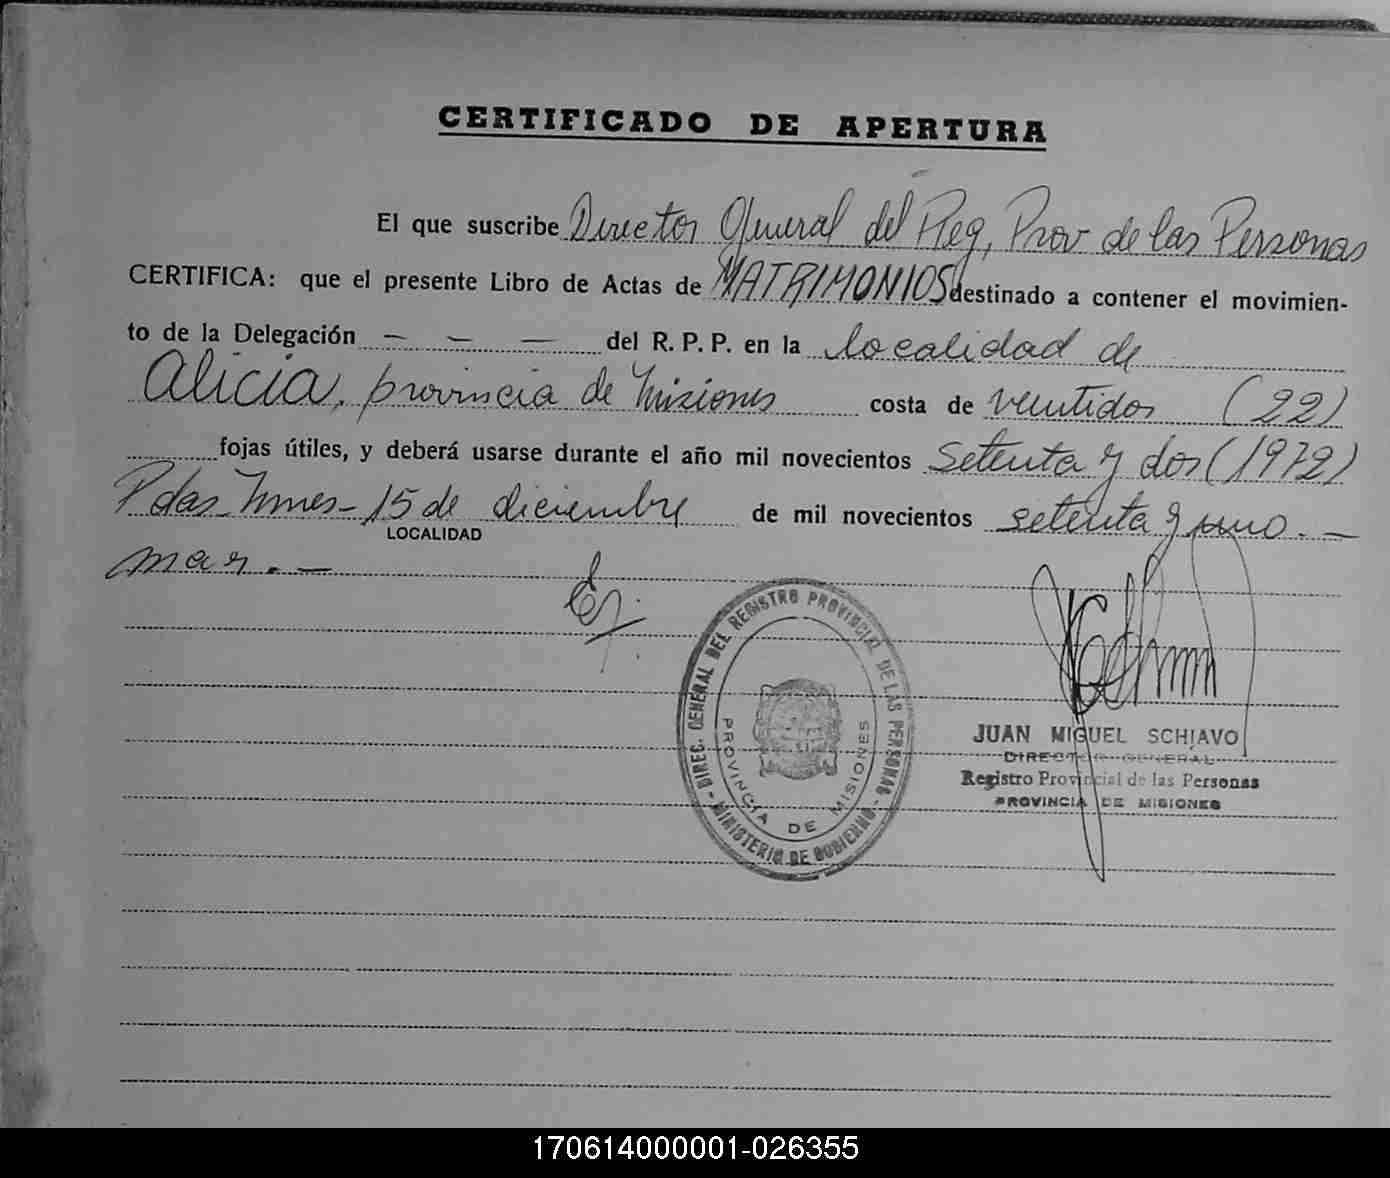 CERTIFICADO DE APERTURA
El que suscribe Director General del Reg, Prov de las Personas
CERTIFICA: que el presente Libro de Actas de MATRIMONIOS destinado a contener el movimien-
to de la Delegación — — — del R. P. P. en la localidad de
Alicia, provincia de Misiones costa de veintidos (22)
fojas útiles, y deberá usarse durante el año mil novecientos setenta y dos (1972)
Pdas Mnes - 15 de diciembre de mil novecientos setenta y uno. —
LOCALIDAD
mar. —
DIREC. GENERAL DEL REGISTRO PROVINCIAL DE LAS PERSONAS - MINISTERIO DE GOBIERNO -
PROVINCIA DE MISIONES
JUAN MIGUEL SCHIAVO
DIRECTOR GENERAL
Registro Provincial de las Personas
PROVINCIA DE MISIONES
170614000001-026355